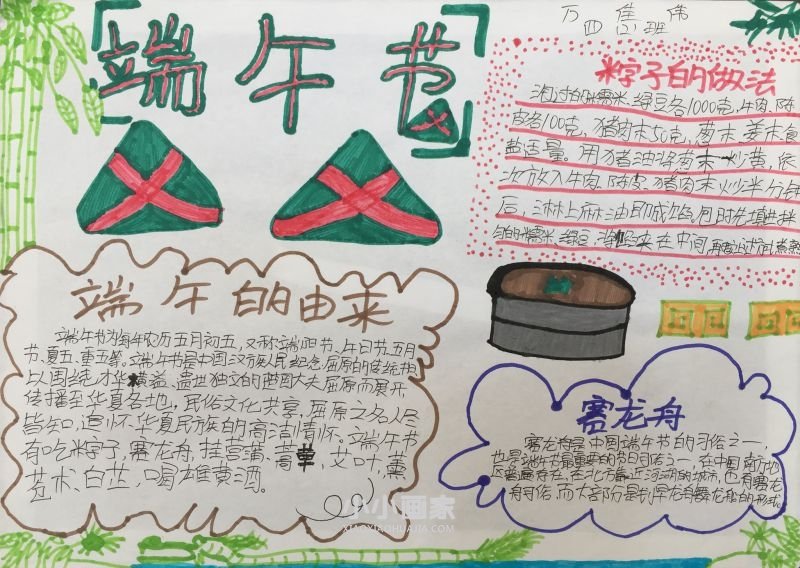 端午节
万 焦 伟
四(2)班
粽子的做法
泡过的糯米、绿豆各1000克,牛肉、陈
皮各100克,猪肉末50克,葱末、姜末食
盐适量。用猪油将葱末炒黄,依
次放入牛肉、陈皮、猪肉末炒半分钟
后,淋上麻油即成馅,包时先填进拌
匀的糯米、绿豆,将馅夹在中间
端午的由来
端午节为每年农历五月初五,又称端阳节、午日节、五月
节、夏五、重五等。端午节是中国汉族人民纪念屈原的传统
以围绕才华横溢、遗世独立的楚国大夫屈原而展开
传播至华夏各地,民俗文化共享,屈原之名人尽
皆知,追怀华夏民族的高洁情怀。端午节
有吃粽子,赛龙舟,挂菖蒲、蒿草,艾叶,薰
苍术、白芷,喝雄黄酒。
赛龙舟
赛龙舟是中国端午节的习俗之一,
也是端午节最重要的节日习俗之一,在中国南方地
区普遍存在,在北方靠近河湖的城市也有赛龙
舟习俗,而大部分是划旱龙舟舞龙船的形式。
小小画家
XIAOXIAOHUAJIA.COM